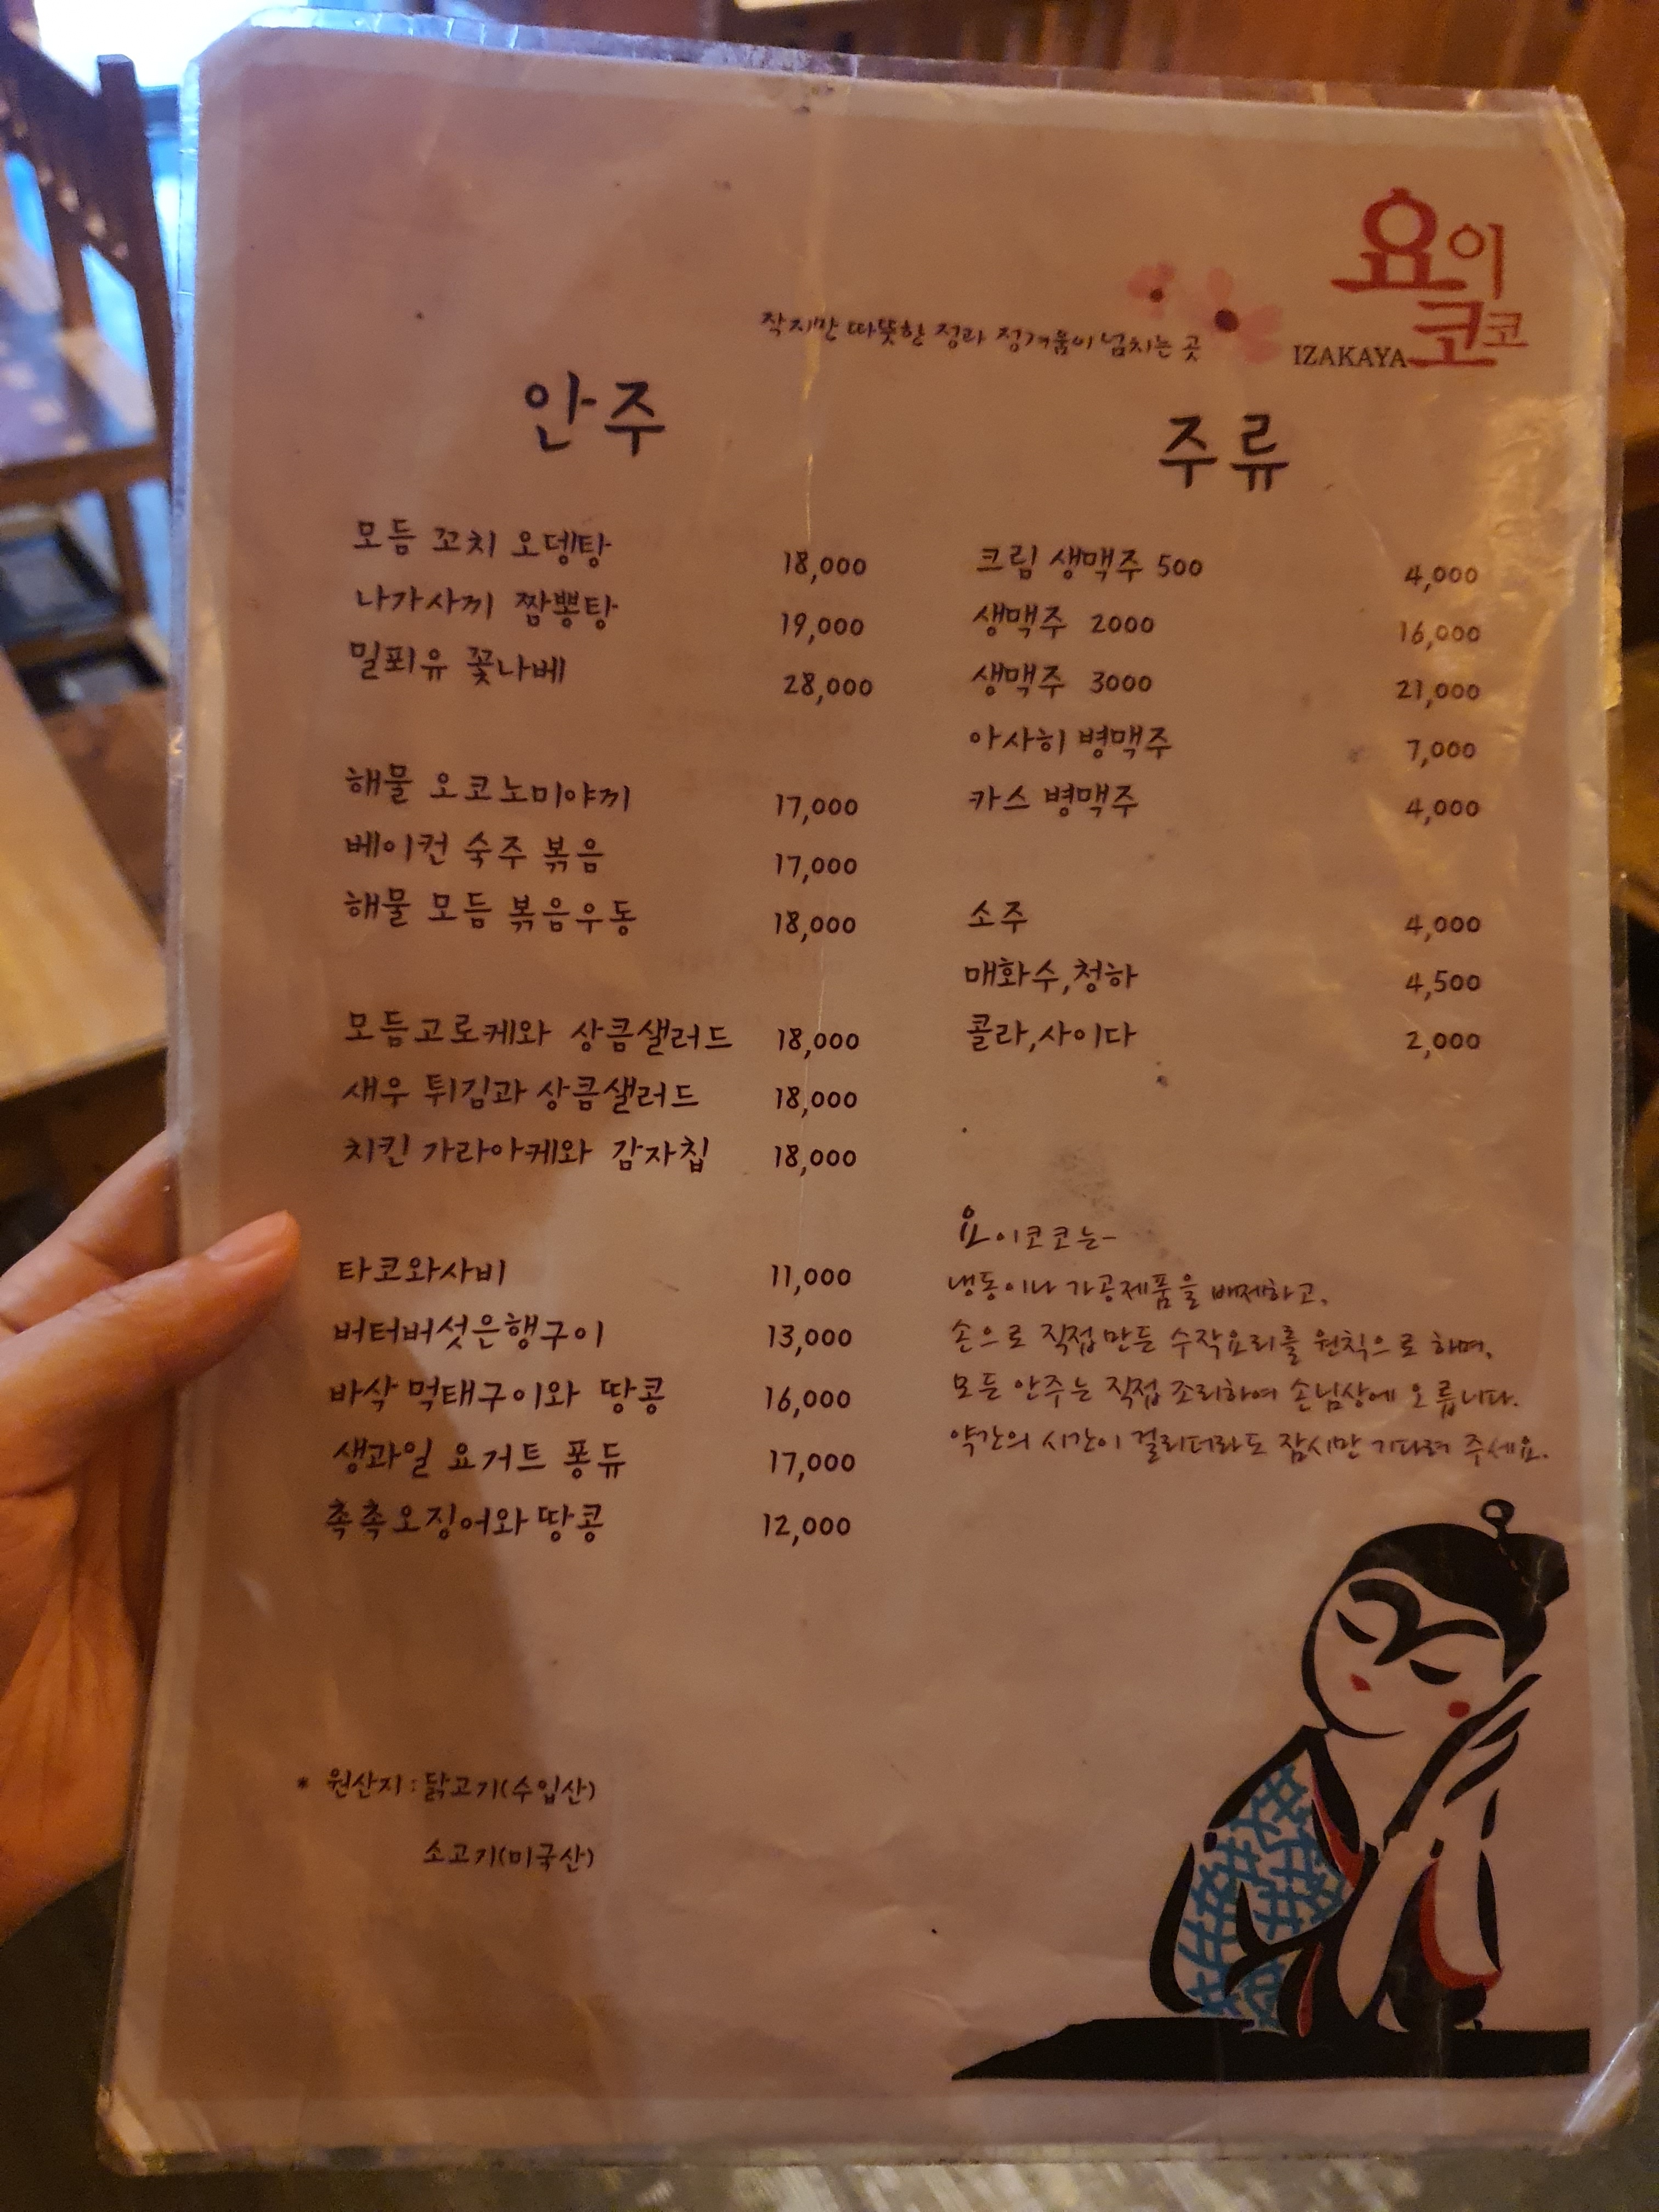 요이
코코
IZAKAYA
작지만 따뜻한 정과 정겨움이 넘치는 곳
안주
모듬 꼬치 오뎅탕 18,000
나가사끼 짬뽕탕 19,000
밀푀유 꽃나베 28,000
해물 오코노미야끼 17,000
베이컨 숙주 볶음 17,000
해물 모듬 볶음우동 18,000
모듬고로케와 상큼샐러드 18,000
새우 튀김과 상큼샐러드 18,000
치킨 가라아케와 감자칩 18,000
타코와사비 11,000
버터버섯은행구이 13,000
바삭 먹태구이와 땅콩 16,000
생과일 요거트 퐁듀 17,000
촉촉오징어와 땅콩 12,000
* 원산지 : 닭고기(수입산)
소고기(미국산)
주류
크림 생맥주 500 4,000
생맥주 2000 16,000
생맥주 3000 21,000
아사히 병맥주 7,000
카스 병맥주 4,000
소주 4,000
매화수,청하 4,500
콜라,사이다 2,000
요이코코는-
냉동이나 가공제품을 배제하고,
손으로 직접 만든 수작요리를 원칙으로 하며,
모든 안주는 직접 조리하여 손님상에 오릅니다.
약간의 시간이 걸리더라도 잠시만 기다려 주세요.